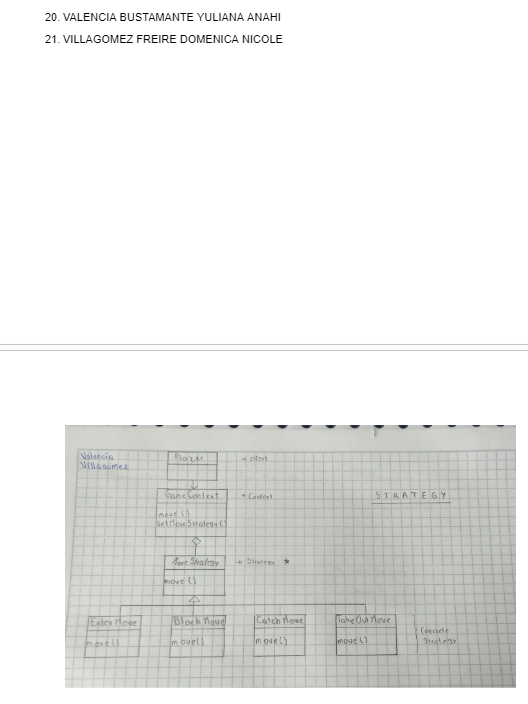 20. VALENCIA BUSTAMANTE YULIANA ANAHI
21. VILLAGOMEZ FREIRE DOMENICA NICOLE
Valencia
Villagómez
Player
→ client
GameContext
* Context
STRATEGY
move ()
setMoveStrategy()
Move Strategy
→ Strategy *
move ()
Enter Move
Block Move
Catch Move
Take Out Move
move()
move()
move()
move()
Concrete
Strategy